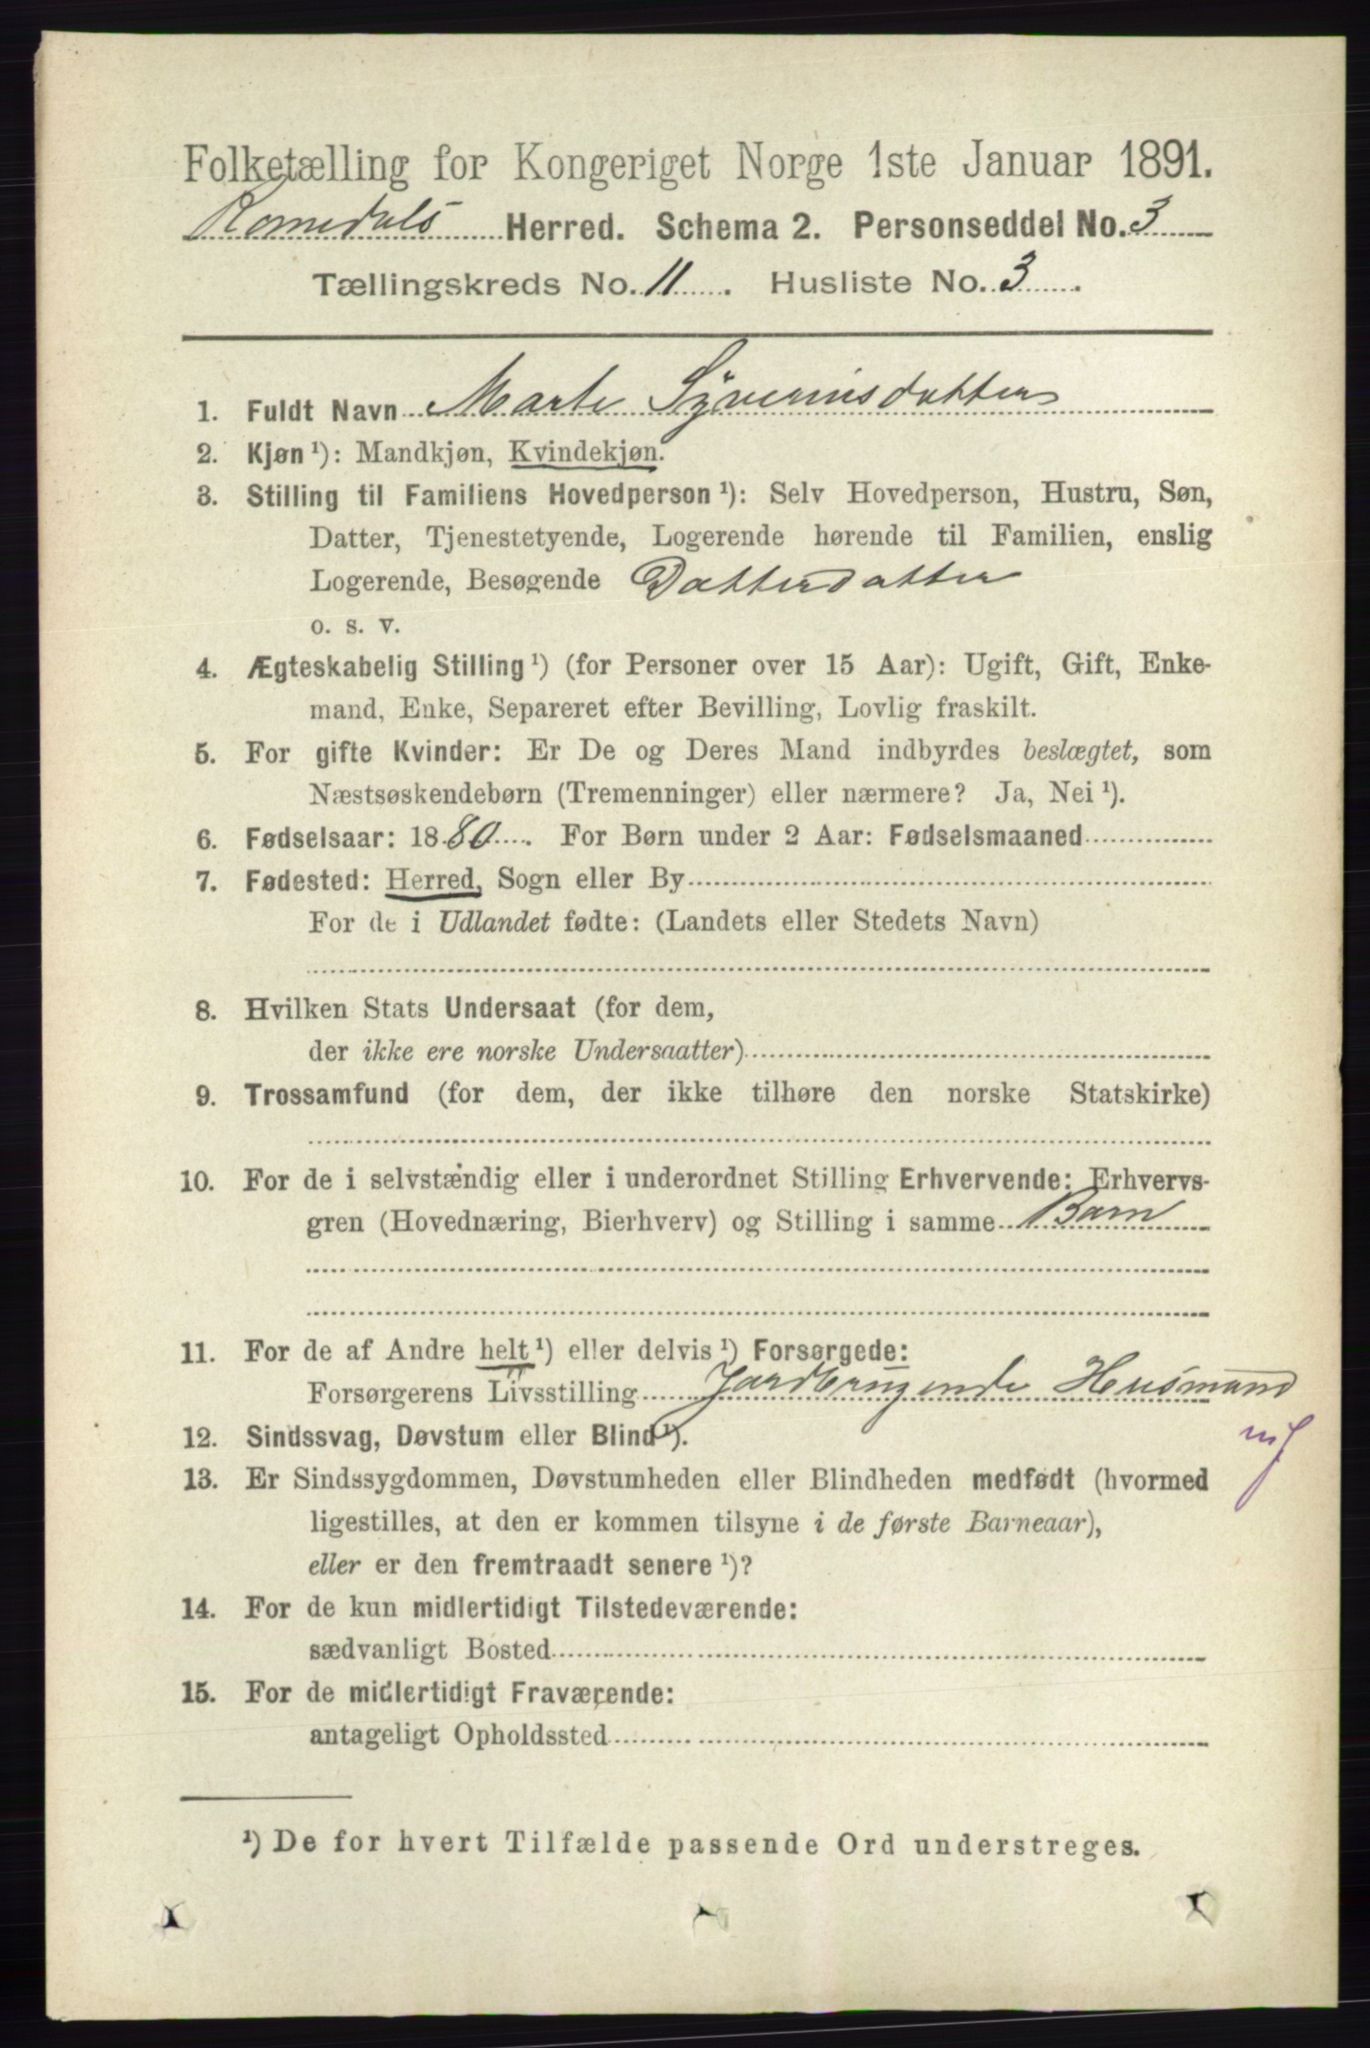 Folketælling for Kongeriget Norge 1ste Januar 1891.
Romedals Herred. Schema 2. Personseddel No. 3
Tællingskreds No. 11 . Husliste No. 3 .
1. Fuldt Navn Marte Syverinsdatter
2. Kjøn ¹): Mandkjøn, Kvindekjøn.
3. Stilling til Familiens Hovedperson ¹): Selv Hovedperson, Hustru, Søn,
Datter, Tjenestetyende, Logerende hørende til Familien, enslig
Logerende, Besøgende Datterdatter
o. s. v.
4. Ægteskabelig Stilling ¹) (for Personer over 15 Aar): Ugift, Gift, Enke-
mand, Enke, Separeret efter Bevilling, Lovlig fraskilt.
5. For gifte Kvinder: Er De og Deres Mand indbyrdes beslægtet, som
Næstsøskendebørn (Tremenninger) eller nærmere? Ja, Nei ¹).
6. Fødselsaar: 1880 . For Børn under 2 Aar: Fødselsmaaned
7. Fødested: Herred, Sogn eller By
For de i Udlandet fødte: (Landets eller Stedets Navn)
8. Hvilken Stats Undersaat (for dem,
der ikke ere norske Undersaatter)
9. Trossamfund (for dem, der ikke tilhøre den norske Statskirke)
10. For de i selvstændig eller i underordnet Stilling Erhvervende: Erhvervs-
gren (Hovednæring, Bierhverv) og Stilling i samme Barn
11. For de af Andre helt ¹) eller delvis ¹) Forsørgede:
Forsørgerens Livsstilling Jordbrugende Husmand
12. Sindssvag, Døvstum eller Blind ¹).
13. Er Sindssygdommen, Døvstumheden eller Blindheden medfødt (hvormed
ligestilles, at den er kommen tilsyne i de første Barneaar),
eller er den fremtraadt senere ¹)?
14. For de kun midlertidigt Tilstedeværende:
sædvanligt Bosted
15. For de midlertidigt Fraværende:
antageligt Opholdssted
¹) De for hvert Tilfælde passende Ord understreges.